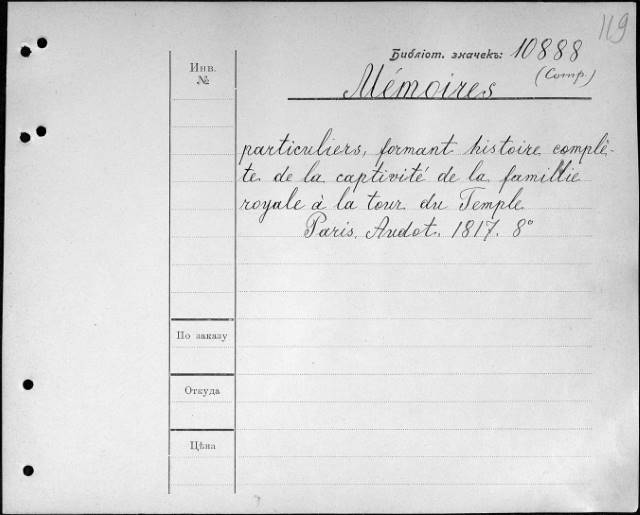 119
Библіот. значекъ: 10888
(Comp.)
Инв.
№
Mémoires
particuliers, formant histoire complè-
te de la captivité de la famillie
royale à la tour du Temple
Paris, Audot. 1817. 8°
По заказу
Откуда
Цѣна